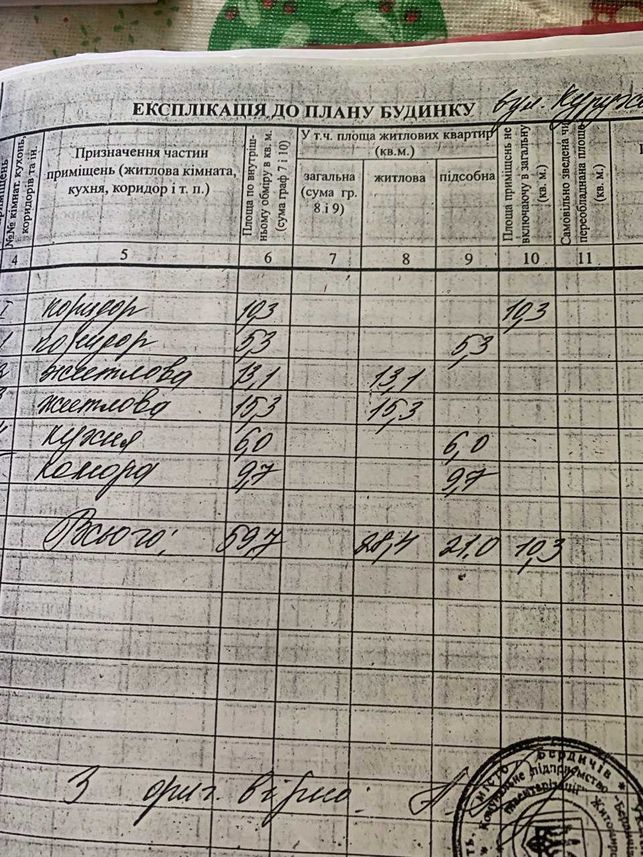 ЕКСПЛІКАЦІЯ ДО ПЛАНУ БУДИНКУ вул.
№№ кімнат, кухонь, коридорів та ін.
Призначення частин приміщень (житлова кімната, кухня, коридор і т. п.)
Площа по внутріш-ньому обміру в кв. м. (сума граф 7 і 10)
У т.ч. площа житлових квартир (кв.м.)
загальна (сума гр. 8 і 9)
житлова
підсобна
Площа приміщень не включаючу в загальну (кв. м.)
Самовільно зведена чи переобладнана площа (кв. м.)
4 5 6 7 8 9 10 11
I коридор 10,3 10,3
1 коридор 5,3 5,3
2 житлова 13,1 13,1
3 житлова 15,3 15,3
4 кухня 6,0 6,0
комора 9,7 9,7
Всього: 59,7 28,4 21.0 10,3
З ориг. вірно:
місто Бердичів *
Комунальне підприємство
інвентаризації